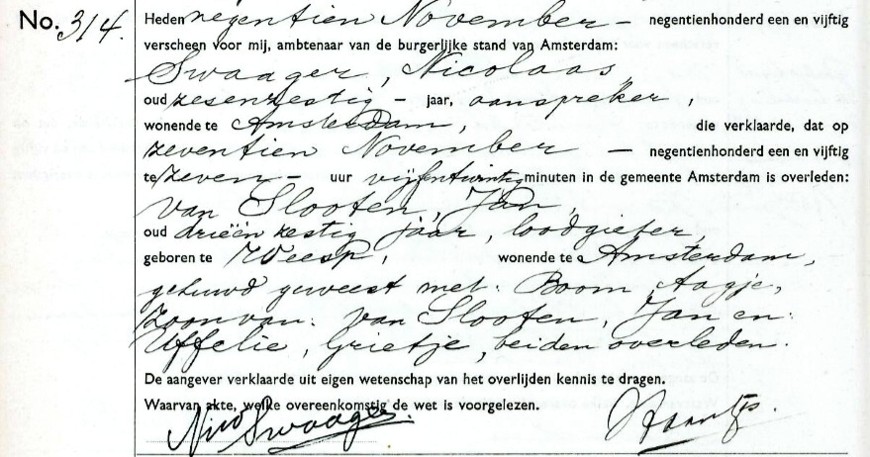 No. 314. Heden negentien November – negentienhonderd een en vijftig
verscheen voor mij, ambtenaar van de burgerlijke stand van Amsterdam:
Swaager, Nicolaas,
oud zesenzestig – jaar, aanspreker,
wonende te Amsterdam, die verklaarde, dat op
zeventien November – negentienhonderd een en vijftig
te zeven – uur vijfentwintig minuten in de gemeente Amsterdam is overleden:
van Slooten, Jan,
oud drieënzestig jaar, loodgieter
geboren te Weesp, wonende te Amsterdam,
gehuwd geweest met: Boom, Aagje,
zoon van: van Slooten, Jan en:
Uffelie, Grietje, beiden overleden.
De aangever verklaarde uit eigen wetenschap van het overlijden kennis te dragen.
Waarvan akte, welke overeenkomstig de wet is voorgelezen.
Nico Swaager.